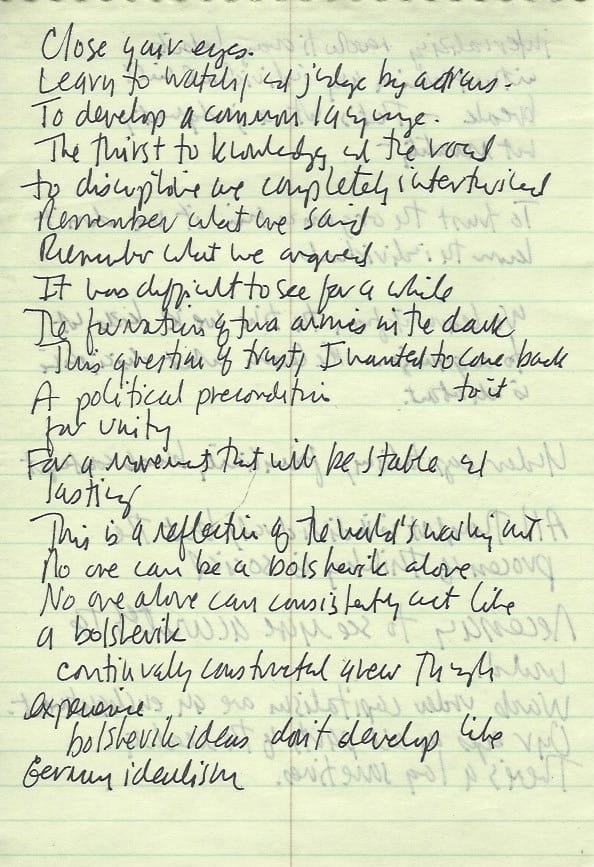 Close your eyes.
Learn to watch, and judge by actions.
To develop a common language.
The thirst to knowledge and the road
to discipline are completely intertwined
Remember what we said
Remember what we argued
It was difficult to see for a while
The formation of two armies in the dark
This question of trust, I wanted to come back
to it
A political precondition
for unity
For a movement that will be stable and
lasting
This is a reflection of the world's working out
No one can be a bolshevik alone.
No one alone can consistently act like
a bolshevik
continually constructed anew through
experience
bolshevik ideas don't develop like
German idealism